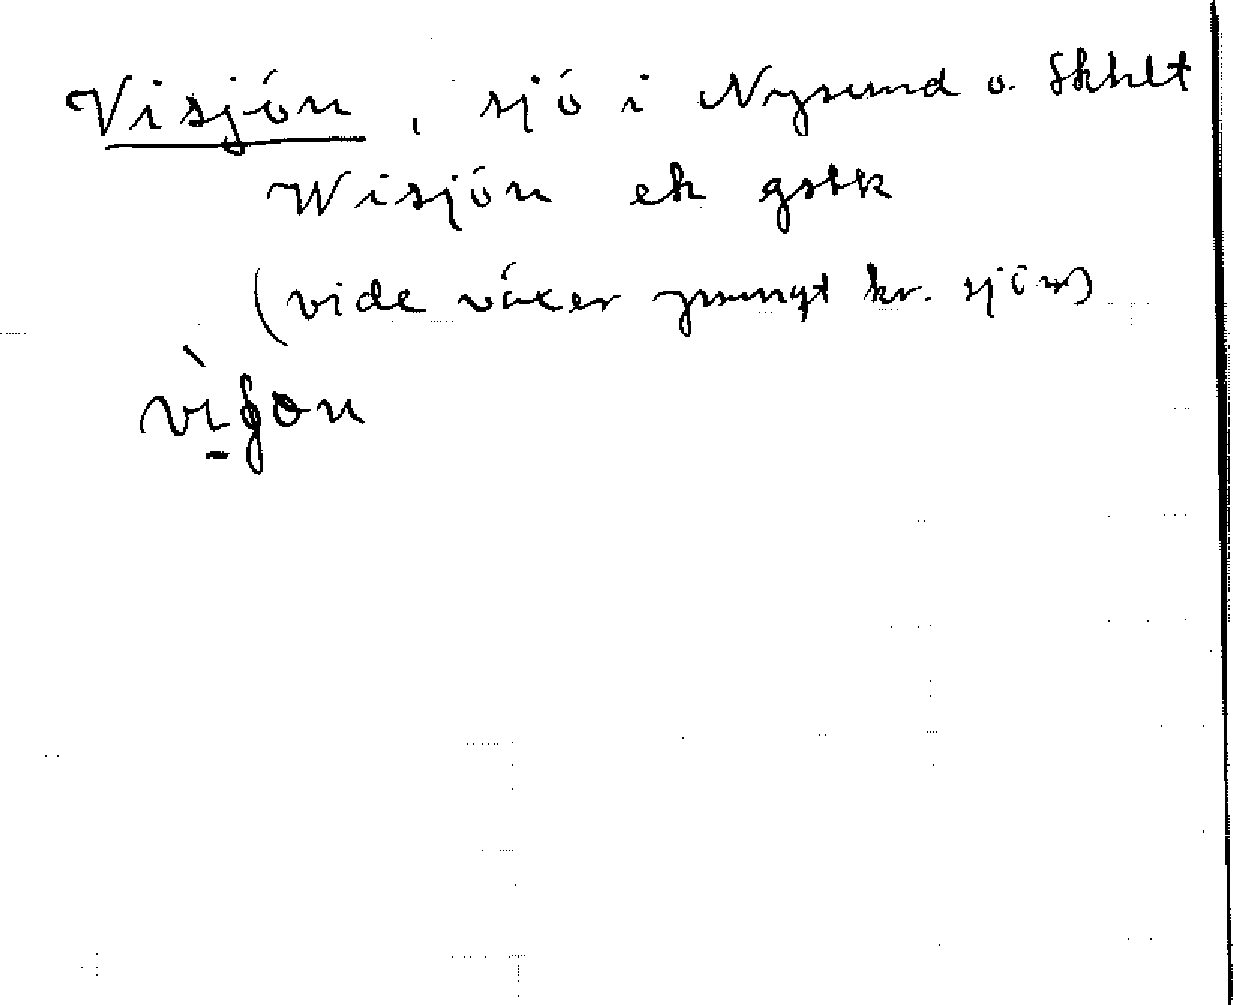 Visjön, sjö i Nysund o. Skhlt
Wisjön ek gstk
(vide växer ymnigt kr. sjön)